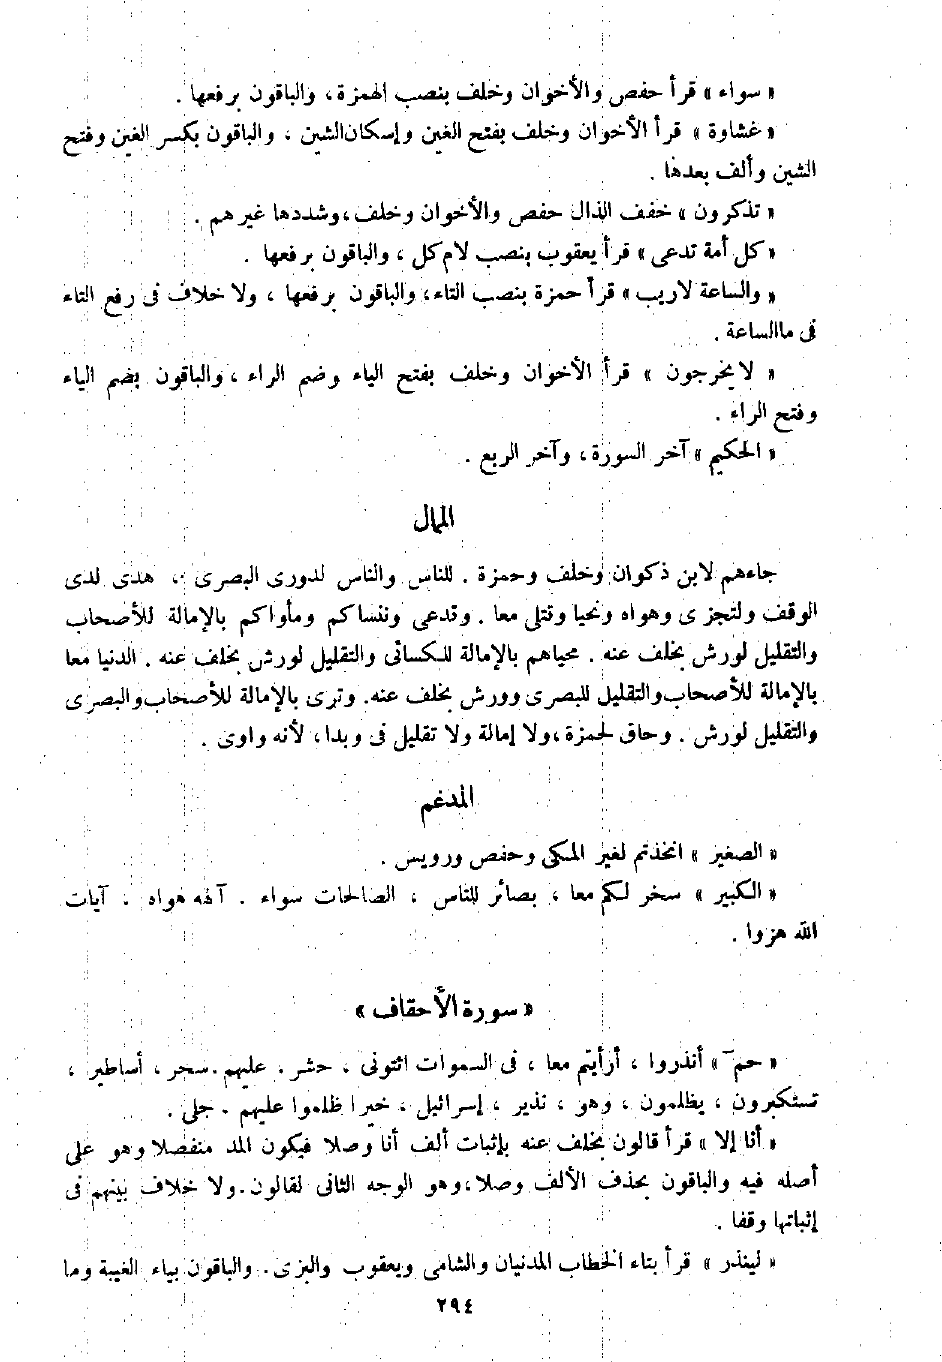 « سواء » قرأ حفص والأخوان وخلف بنصب الهمزة، والباقون برفعها .
« غشاوة » قرأ الأخوان وخلف بفتح الغين وإسكان الشين ، والباقون بكسر الغين وفتح
الشين وألف بعدها .
« تذكرون » خفف الذال حفص والأخوان وخلف، وشددها غيرهم .
« كل أمة تدعى » قرأ يعقوب بنصب لام كل ، والباقون برفعها .
« والساعة لاريب » قرأ حمزة بنصب التاء، والباقون برفعها ، ولا خلاف فى رفع التاء
فى ماالساعة .
« لا يخرجون » قرأ الأخوان وخلف بفتح الياء وضم الراء ، والباقون بضم الياء
وفتح الراء .
« الحكيم » آخر السورة، وآخر الربع .
الممال
جاءهم لابن ذكوان وخلف وحمزة . للناس والناس لدورى البصرى ، هدى لدى
الوقف ولتجزى وهواه ونحيا وتتلى معا . وتدعى وننساكم ومأواكم بالإمالة للأصحاب
والتقليل لورش بخلف عنه . محياهم بالإمالة للكسائى والتقليل لورش بخلف عنه . الدنيا معا
بالإمالة للأصحاب والتقليل للبصرى وورش بخلف عنه. وترى بالإمالة للأصحاب والبصرى
والتقليل لورش . وحاق لحمزة، ولا إمالة ولا تقليل فى وبدا ، لأنه واوى .
المدغم
« الصغير » اتخذتم لغير المكى وحفص ورويس .
« الكبير » سخر لكم معا ، بصائر للناس ، الصالحات سواء . آلهه هواه . آيات
الله هزوا .
« سورة الأحقاف »
« حمٓ » أنذروا ، أرأيتم معا ، فى السموات ائتونى ، حشر . عليهم . سحر ، أساطير ،
تستكبرون ، يظلمون ، وهو ، نذير ، إسرائيل ، خيرا ظلموا عليهم . جلى .
« أنا إلا » قرأ قالون بخلف عنه بإثبات ألف أنا وصلا فيكون المد منفصلا وهو على
أصله فيه والباقون بحذف الألف وصلا، وهو الوجه الثانى لقالون. ولا خلاف بينهم فى
إثباتها وقفا .
« لينذر » قرأ بتاء الخطاب المدنيان والشامى ويعقوب والبزى. والباقون بياء الغيبة وما
٢٩٤